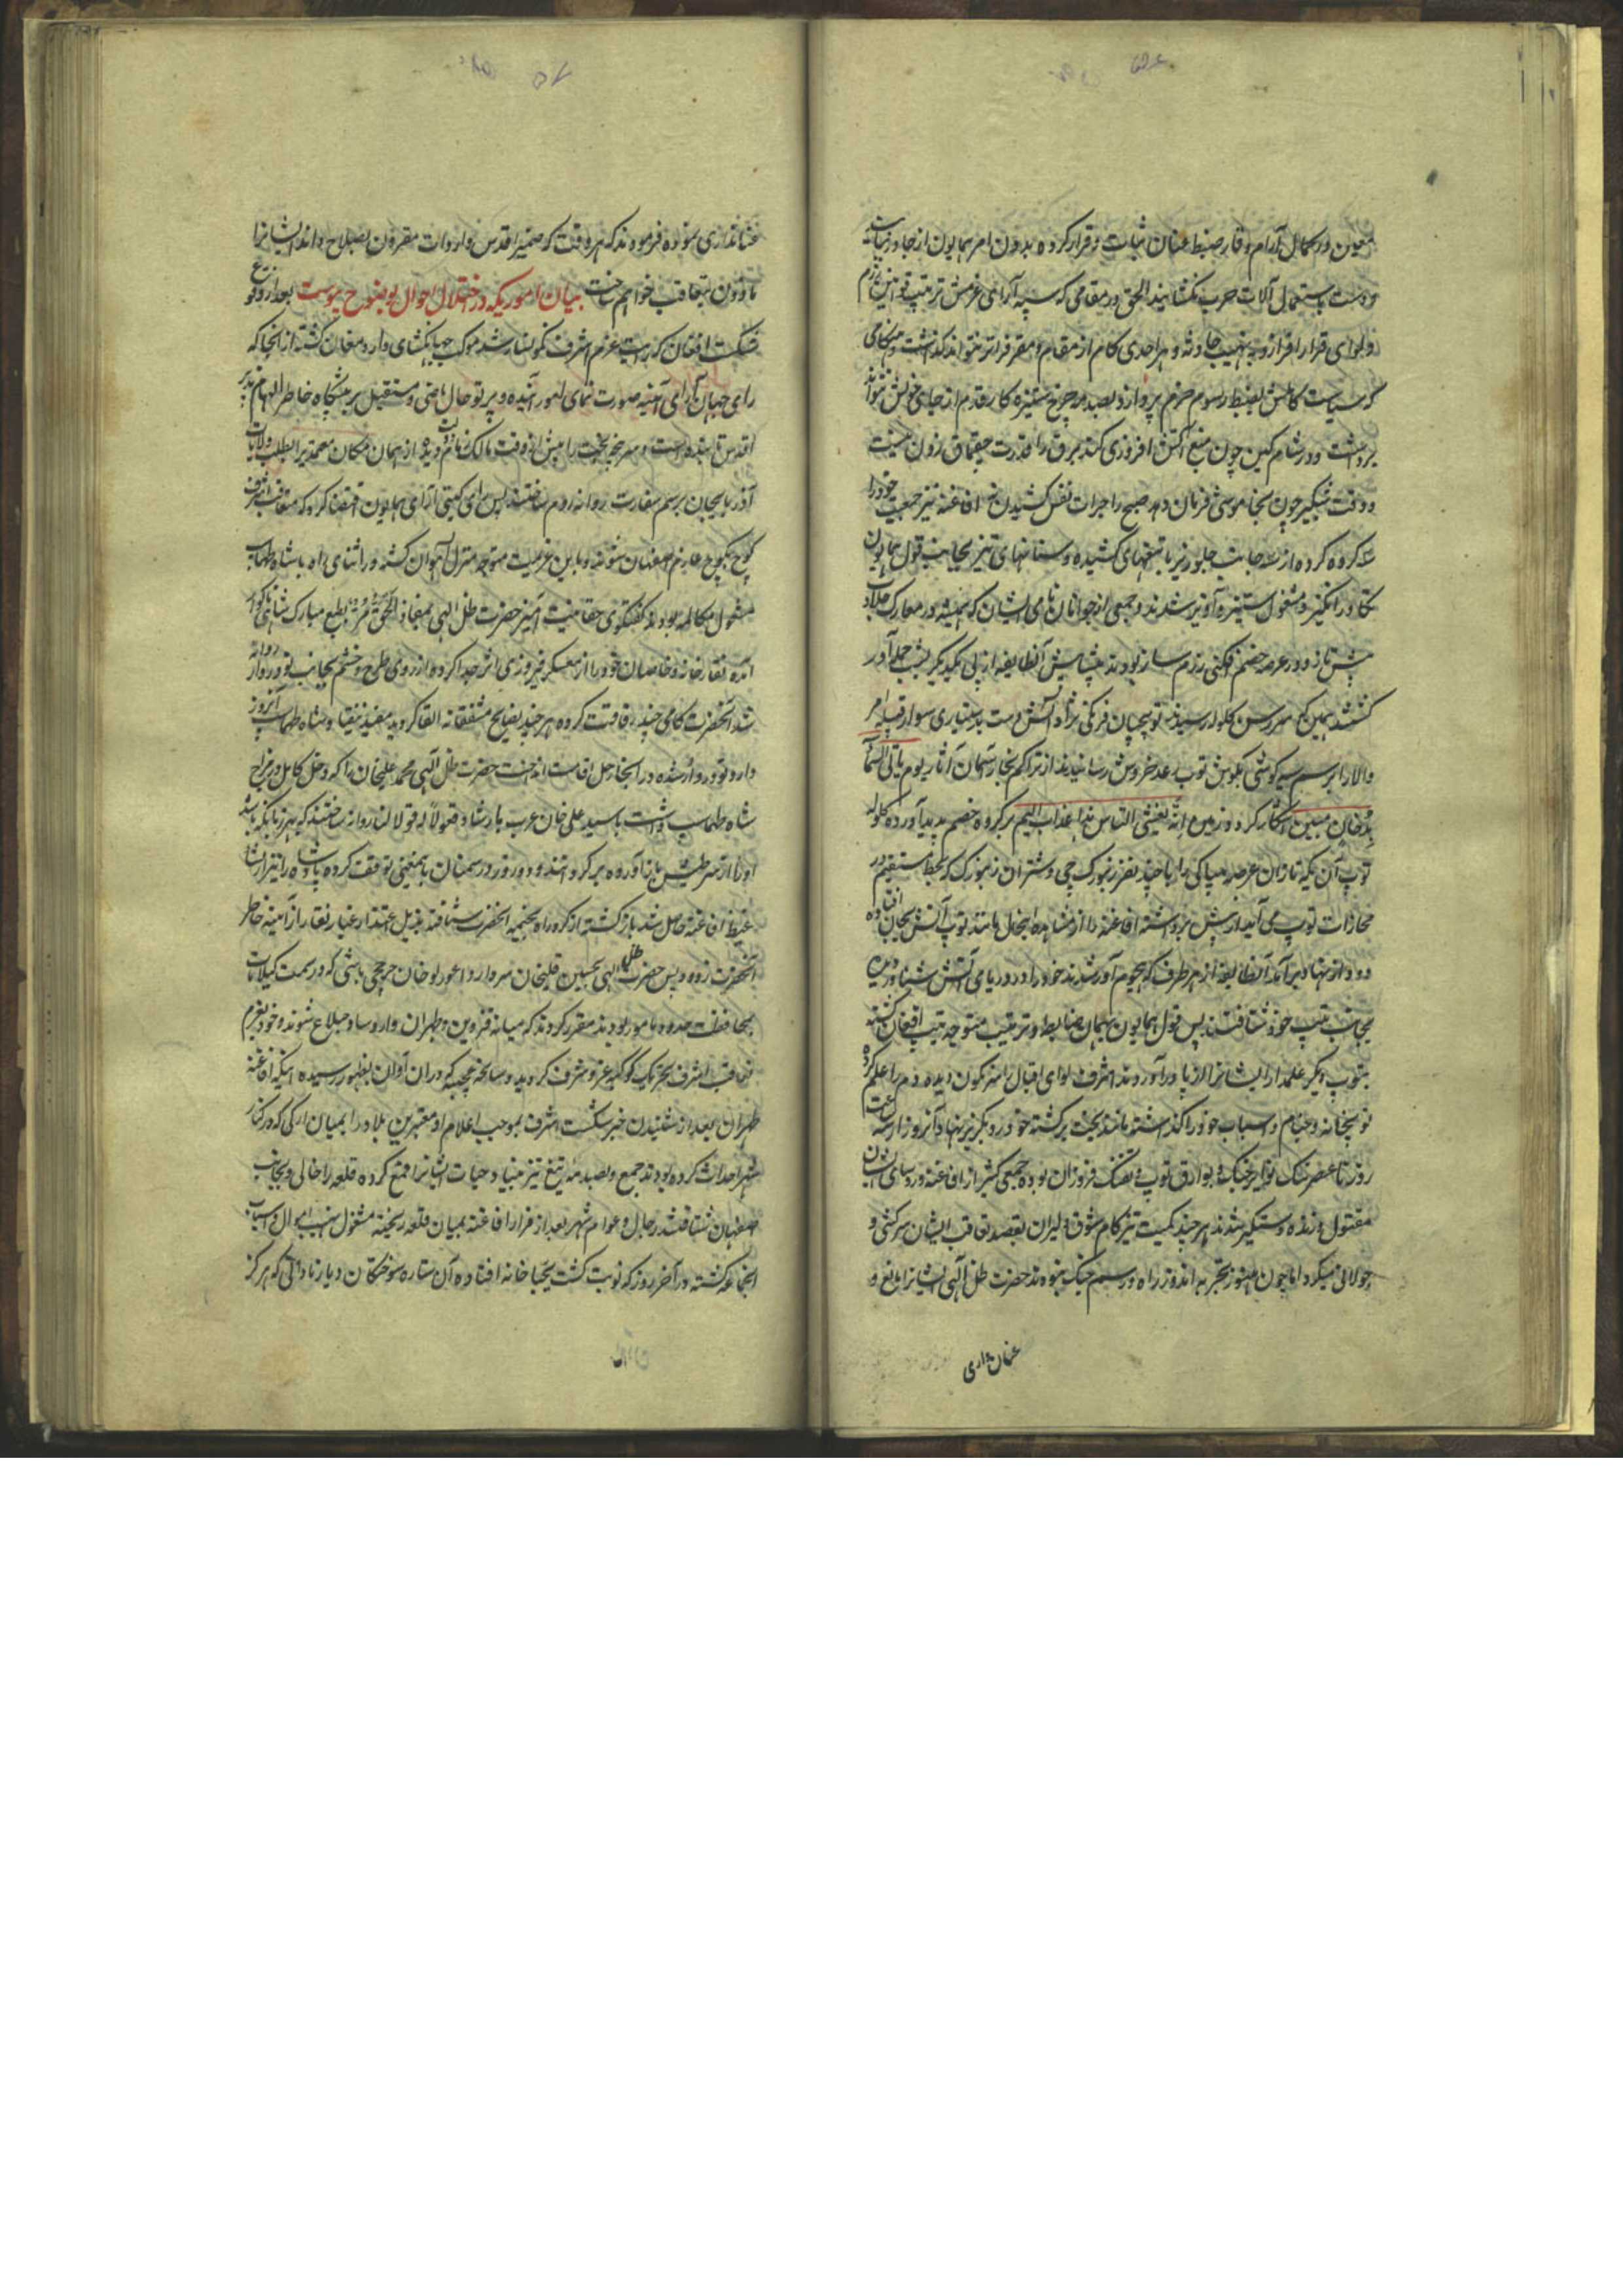 معین در کمال آرام و قار ضبط عنان ثبات و قرار کرده بدون امر همایون از جا در نیایند
و دست باستعمال آلات حرب نکشایند الحق در مقامی که سپه آرای عزمش ترتیب قوانین رزم
و لوای قرار افرازد بنهیب حادثه و هر احدی کام از مقام و مقر فراتر نتواند گذاشت و هنگامی
که سیاست کاملش بضبط رسوم حزم پردازد بصد مه چرخ ستیزه کار قدم از جای خویش نتواند
برداشت و در شام کین چون منع آتش افروزی کند برق را قدرت چقماق زدن نیست
و وقت شبگیر چون بخاموشی فرمان دهد صبح را جرات نفس کشیدن نه افاغنه نیز جمعیت خود را
سه گروه کرده از سه جانب جلوریز با تیغهای کشیده و سنانهای تیز بجانب قول همایون
تکاور انگیز و مشغول ستیزه آویز شدند و جمعی از جوانان نامی ایشان که همیشه در معارک جلادت
پیش تاز و در عرصه خصم فکنی رزم ساز بودند پیشاپیش آنطایفه از پی یکدیگر بشب حمله آور
گشتند همین که سررسن گلوله رسیدند توپچیان فرنگی نژاد آتش دست بدستیاری سوار قبله امر
والا را بر سم سیه گوشی بگوش توپ رعد خروش رسانیدند از تراکم بخار آسمان آثار یوم یأتی السماء
بدخان مبین آشکار کرد و زمین را یغشی الناس هذا عذاب الیم بر گروه خصم پدید آورده گلوله
توپ آن یکه تازان عرصه بیباکی را با چند نفر زنبورکچی و شتران زنبورک که بخط مستقیم در
محاذات توپ می آیند از پیش برداشته افاغنه را از مشاهده اینحال مانند توپ آتش بجان افتاده
دود از نهاد برآمد آنطایفه از هر طرف که هجوم آور شدند خود را در دریای آتش شناور دیده
بجانب تیپ خود شتافتند پس قول همایون بهمان ضابطه و ترتیب متوجه تیپ افغان گشته
بتوپ دیگر علمدار ایشانرا از پا درآوردند اشرف لوای اقبال را سرنگون دیده رم را علم کرده
توپخانه و خیام و اسباب خود را گذاشته مانند بخت برگشته خود رو بگریز نهاد آنروز از سه ساعت
روز تا عصر تنگ نوایر جنگ و بوارق توپ و تفنگ فروزان بوده جمعی کثیر از افاغنه و رؤسای ایشان
مقتول و زنده دستگیر شدند هر چند کمیت تیز کام شوق دلیران بقصد تعاقب ایشان سرکشی و
جولانی میکرد اما چون هنوز تجربه اندوز راه و رسم جنگ نبودند حضرت ظل الهی ایشانرا مانع و
عنان داری
عنانداری نموده فرمودند که هر وقت که ضمیر اقدس واردات مقرون بصلاح داند ایشانرا
ماذون بتعاقب خواهیم ساخت بیان اموریکه در اختلال احوال بوضوح پیوست بعد از وقوع
شکست افغان که رایت عزم اشرف نگونسار شد موکب جهانگشای وارد مغان گشته از آنجا که
رای جهان آرای آئینه صورت نمای امور آینده و پرتو حال ماضی و مستقبل بر پیشگاه خاطر الهام پذیر
اقدس تابنده است و سرپنجه بخت را پیش از وقت مالک دیده از همان مکان محمد بر بطلب ولایات
آذربایجان برسم سفارت روانه روم ساختند پس رای گیتی آرای همایون اقتضا کرد که متعاقب اشرف
کوچ بکوچ عازم اصفهان شوند و باین عزیمت متوجه منزل آهوان گشته در اثنای راه با شاه طهماسب
مشغول مکالمه بودند گفتگوی حقانیت آمیز حضرت ظل الهی بمفاد الحق مر بطبع مبارک شاهی ناگوار
آمده نقارخانه و خاصان خود را از معسکر فیروزی اثر جدا کرده از روی طرح و خشم بجانب تودروار روانه
شد آنحضرت گامی چند رفاقت کرده هر چند نصایح مشفقانه القا کردند مفید نیفتاد و شاه طهماسب آنروز
وارد تودروار شده در آنجا رحل اقامت انداخت حضرت ظل الهی محمد علیخان را که دخل کامل در مزاج
شاه طهماسب داشت با سید علی خان عرب بارشاد قولا له قولا لینا روانه ساختند که بهر زبانیکه باشد
او را از سر طیش باز آورده برگردانند و دو روز در سمنان باینمعنی توقف کرده
غیظ افاغنه حاصل شد بازگشته از گرد راه بخیمه آنحضرت شتافته بذیل اعتذار غبار نقار از آئینه خاطر
آنحضرت زدوده پس حضرت ظل الهی بحسین قلیخان سردار و اعورلو خان چرخچی باشی که در سمت گیلانات
بمحافظت حدود مامور بودند مقرر کردند که میانه قزوین و طهران وارد ساوجبلاغ شوند و خود بعزم
تعاقب اشرف بتحریک کوکبه عز و شرف کردند و سانحه عجیبه که در آن اوان بظهور رسیده اینکه افاغنه
طهران بعد از شنیدن خبر شکست اشرف بموجب اعلام او معتبرین بلده را بمیان ارکی که در کنار
شهر احداث کرده بودند جمع و بصدمه تیغ تیز بنیاد حیات ایشانرا قمع کرده قلعه را خالی و بجانب
اصفهان شتافتند رجال و عوام شهر بعد از فرار افاغنه بمیان قلعه ریخته مشغول نهب اموال و اسباب
آنجماعه گشته در آخر روز که نوبت گشت بجباخانه افتاده آن ستاره سوختگان دیار نادانی که هرگز